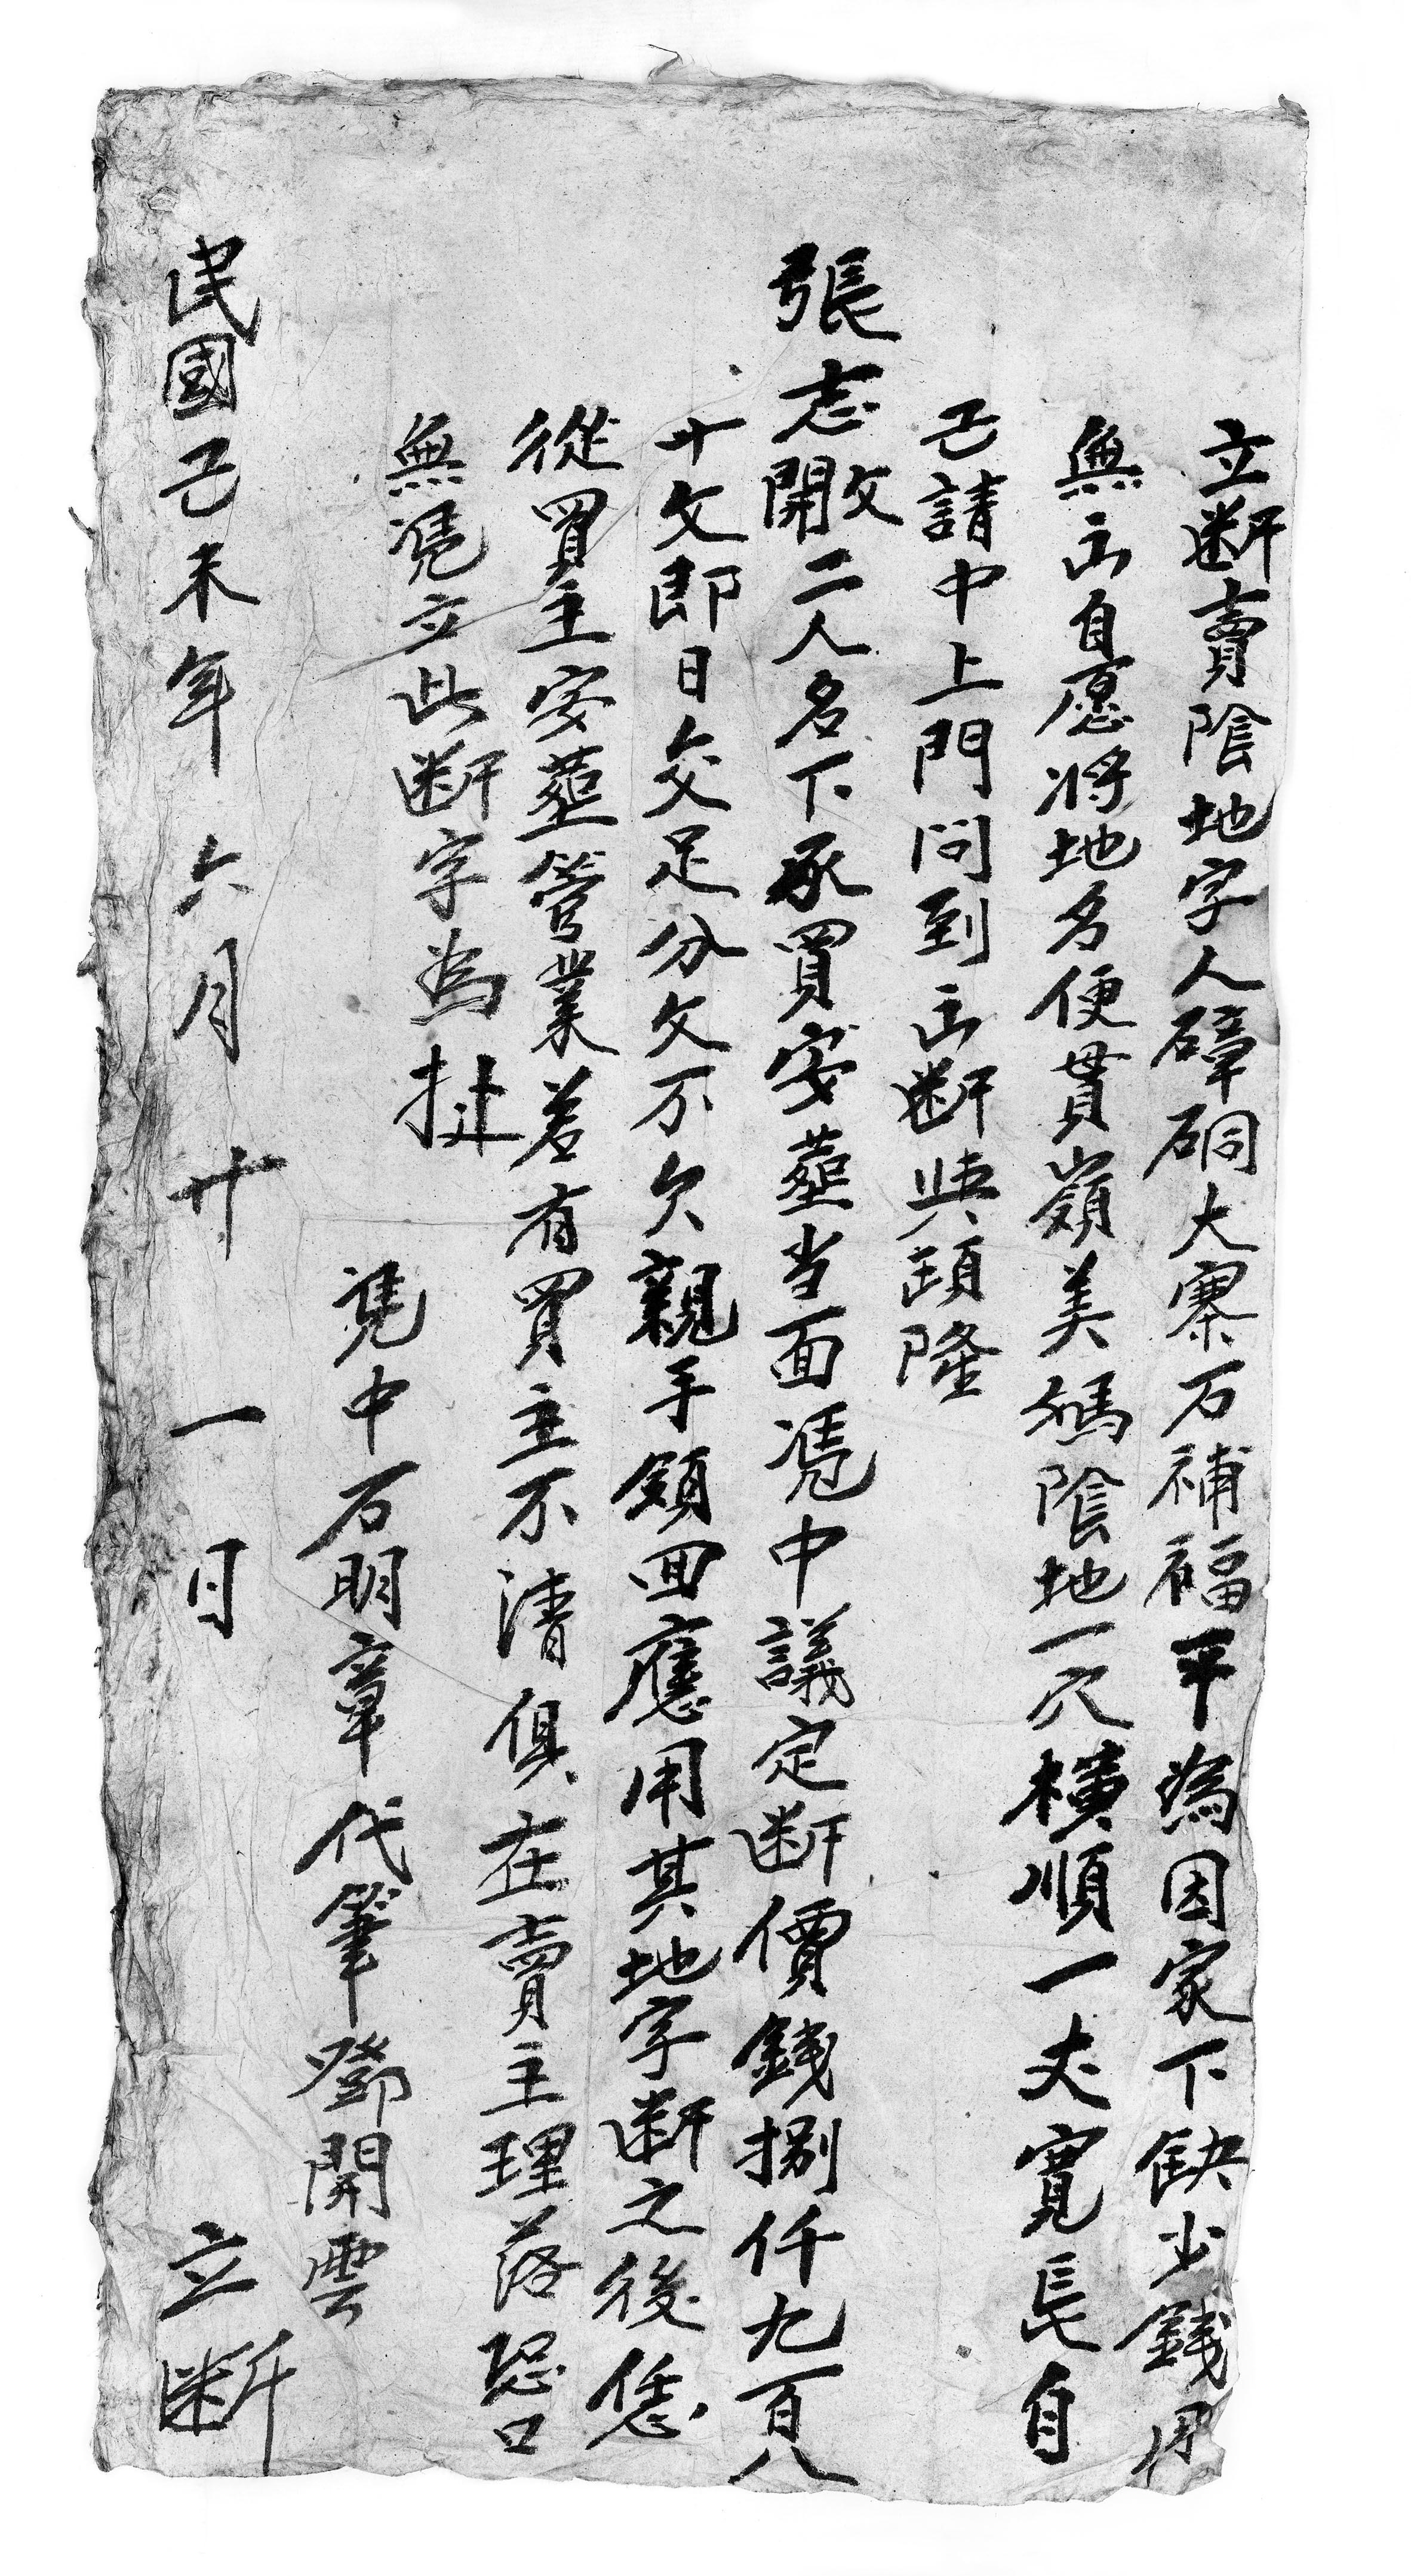 立断賣陰地字人障硐大寨万補福平為因家下缺少錢用
無出自愿將地名便貫嶺美碼陰地一穴橫順一丈寬長自
己請中上門問到出断與頭隆
張志開攵二人名下承買安葬当面凴中議定断價錢捌仟九百八
十文即日交足分文不欠親手領回應用其地字断之後恁
從買主安葬管業若有買主不清俱在賣主理落恐口
無凴立此断字為拠
凴中万明章代筆鄧開雲
民國己未年六月廿一日立断